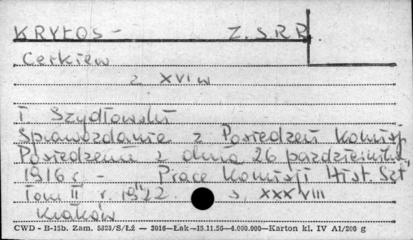 KRYŁOS - Z.S.R.R.
Cerkiew
z XVI w
T. Szydłowski
Sprawozdania z Posiedzeń Komisji
Posiedzenie z dnia 26 października
1916 r. - Prace Komisji Hist. Szt.
Tom II r. 1922 s. XXXVIII
Kraków
CWD - B-13b. Zam. 5823/S/Łż — 3016—Łak—15.11.56—4.000.000—Karton kl. IV A1/200 g